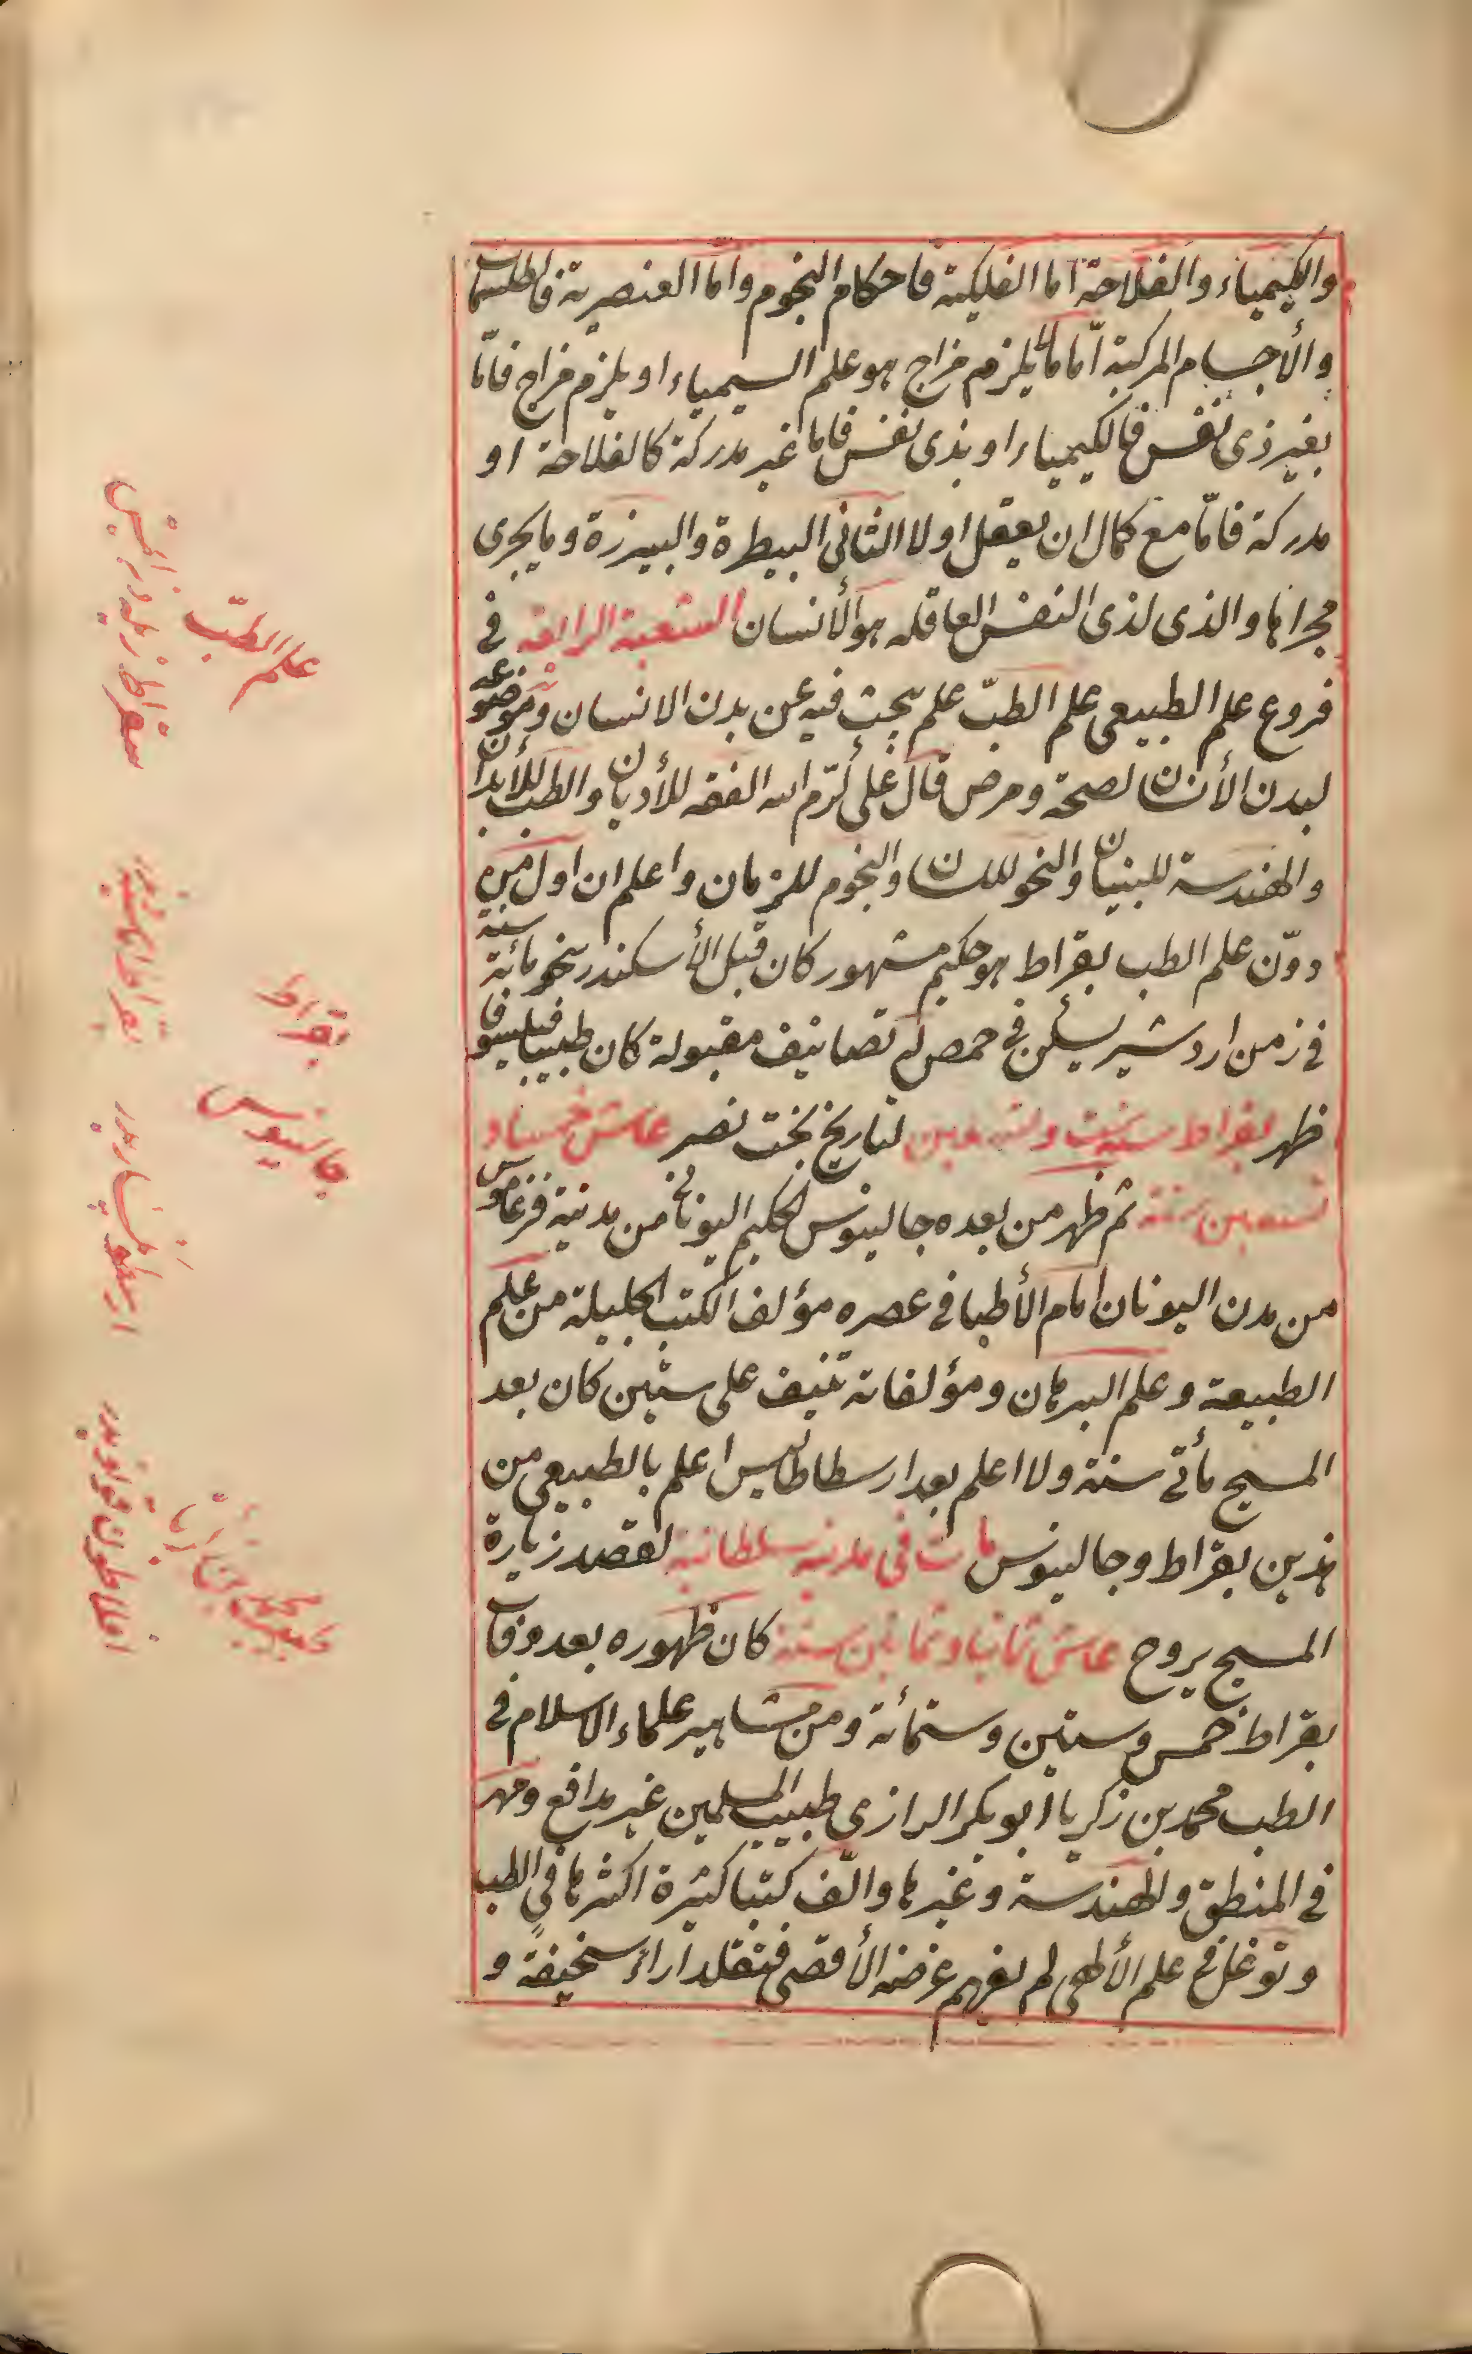 والكيمياء والفلاحة اما الفلكية فاحكام النجوم واما العنصرية فالطلسمات
والأجسام المركبة اما ما لا يلزم مزاج هو علم السيمياء او يلزم مزاج فاما
بغير ذى نفس فالكيمياء او بذى نفس فاما غير مدركة كالفلاحة او
مدركة فامّا مع كمال ان يعقل او لا الثانى البيطرة والبيزرة وما يجرى
مجراها والذى لذى النفس العاقله هو الأنسان الشعبة الرابعة فى
فروع علم الطبيعى علم الطبّ علم يبحث فيه عن بدن الانسان وموضوعه
لبدن الأنسان لصحة ومرض قال على كرّم الله الفقه للأديان والطب للأبدان
والهندسة للبنيان والنحو للسان والنجوم للزمان واعلم ان اول من
دوّن علم الطب بقراط هو حكيم مشهور كان قبل الأسكندر بنحو مائة سنة
فى زمن اردشير يسكن فى حمص له تصانيف مقبولة كان طبيبا فيلسوفا
ظهر بقراط سنة ست وتسعين لتاريخ بخت نصر عاش خمسا و
تسعين سنة ثم ظهر من بعده جالينوس الحكيم اليونانى من مدينة فرغاموس
من مدن اليونان امام الأطبا فى عصره مؤلف الكتب الجليلة من علم
الطبيعة وعلم البرهان ومؤلفاته تنيف على ستين كان بعد
المسيح مأتى سنة ولا اعلم بعد ارسطاطاليس اعلم بالطبيعى من
هذين بقراط وجالينوس مات فى مدينه سلطانية لقصد زيارة
المسيح بروح عاش ثمانيا وثمانين سنة كان ظهوره بعد وفات
بقراط خمس وستين وستمائة ومن مشاهير علماء الاسلام فى
الطب محمد بن زكريا أبو بكر الرازى طبيب المسلمين غير مدافع ومهر
فى المنطق والهندسة وغيرها والّف كتبا كثيرة اكثرها فى الطب
وتوغل فى علم الألهى لم يفهم غرضه الأقصى فتقلد آراء سخيفة و
علم الطبّ
بقراط
جالينوس
محمد بن زكريا
سقراط
بقراط
ارسطو
افلاطون